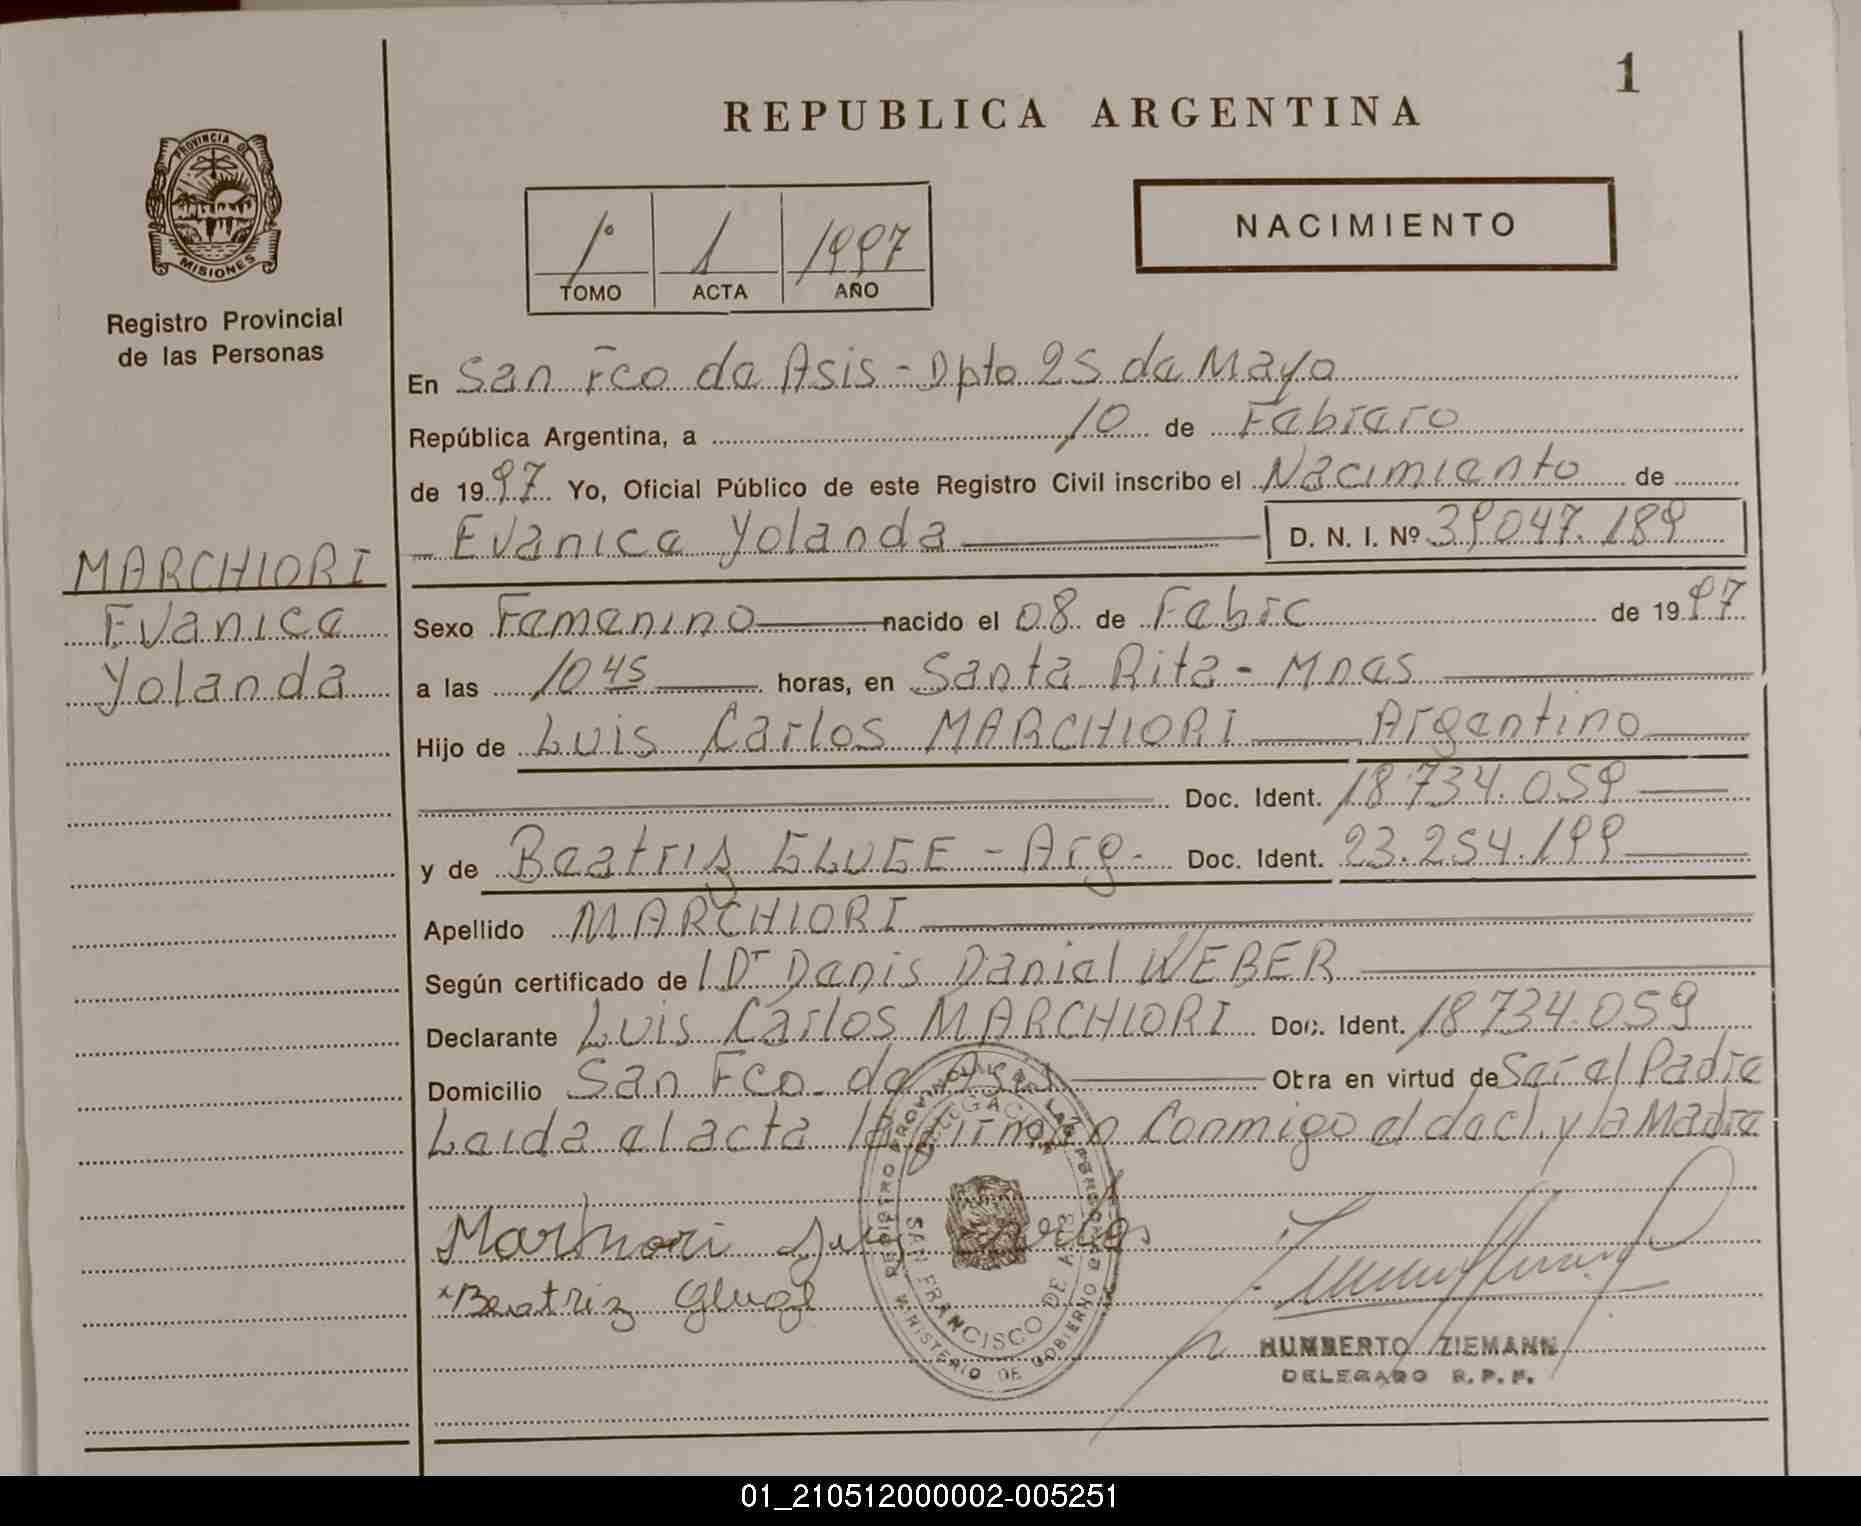 1
REPUBLICA ARGENTINA
PROVINCIA DE
MISIONES
Registro Provincial
de las Personas
1º 1 1997
TOMO ACTA AÑO
NACIMIENTO
En San Fco de Asis - Dpto 25 de Mayo
República Argentina, a 10 de Febrero
de 1997 Yo, Oficial Público de este Registro Civil inscribo el Nacimiento de
Evenice Yolanda D. N. I. Nº 39.047.189
MARCHIORI
Evenice
Yolanda
Sexo Femenino nacido el 08 de Febre de 1997
a las 10 45 horas, en Santa Rita - Mnes
Hijo de Luis Carlos MARCHIORI Argentino
Doc. Ident. 18.734.059
y de Beatriz GLUGE - Arg. Doc. Ident. 23.254.199
Apellido MARCHIORI
Según certificado de l Dr Denis Daniel WEBER
Declarante Luis Carlos MARCHIORI Doc. Ident. 18.734.059
Domicilio San Fco. de Asis Otra en virtud de Ser el Padre
Leida el acta la firman Conmigo el decl. y la Madre
Marchiori Luis Carlos
Beatriz Gluge
REGISTRO PROVINCIAL DE LAS PERSONAS
DELEGACION
SAN FRANCISCO DE ASIS
MINISTERIO DE GOBIERNO
HUMBERTO ZIEMANN
DELEGADO R. P. P.
01_210512000002-005251